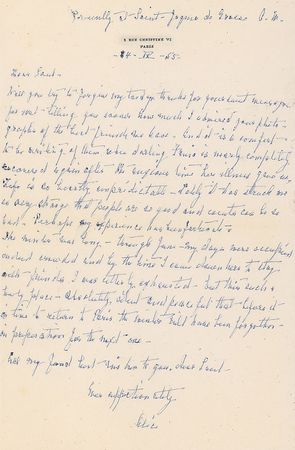 Presently St Saint-Jacques de Grasse A. M.
5 RUE CHRISTINE VI
PARIS
24- IV -55-
Dear Paul-
Will you try to forgive my tardy thanks for your sweet message
for not telling you sooner how much I admired your photo-
graphs of the best friends we have. And it is a comfort-
to be writing of them when darling is nearly completely
recovered again after the anguish her illness gave us.
Life is so unpredictable- it has struck me
as very strange that people are so good and events can be so
bad- Perhaps my experience was unfortunate-
The winter was long- through June- my days were occupied
and by the time I came down here to stay
with friends I was utterly exhausted- but this is such a
lovely place- absolutely silent and peace but that before it
is time to return to Paris the winter will have been forgotten-
in preparation for the next one-
has my fond love to you, dear Paul-
Ever affectionately